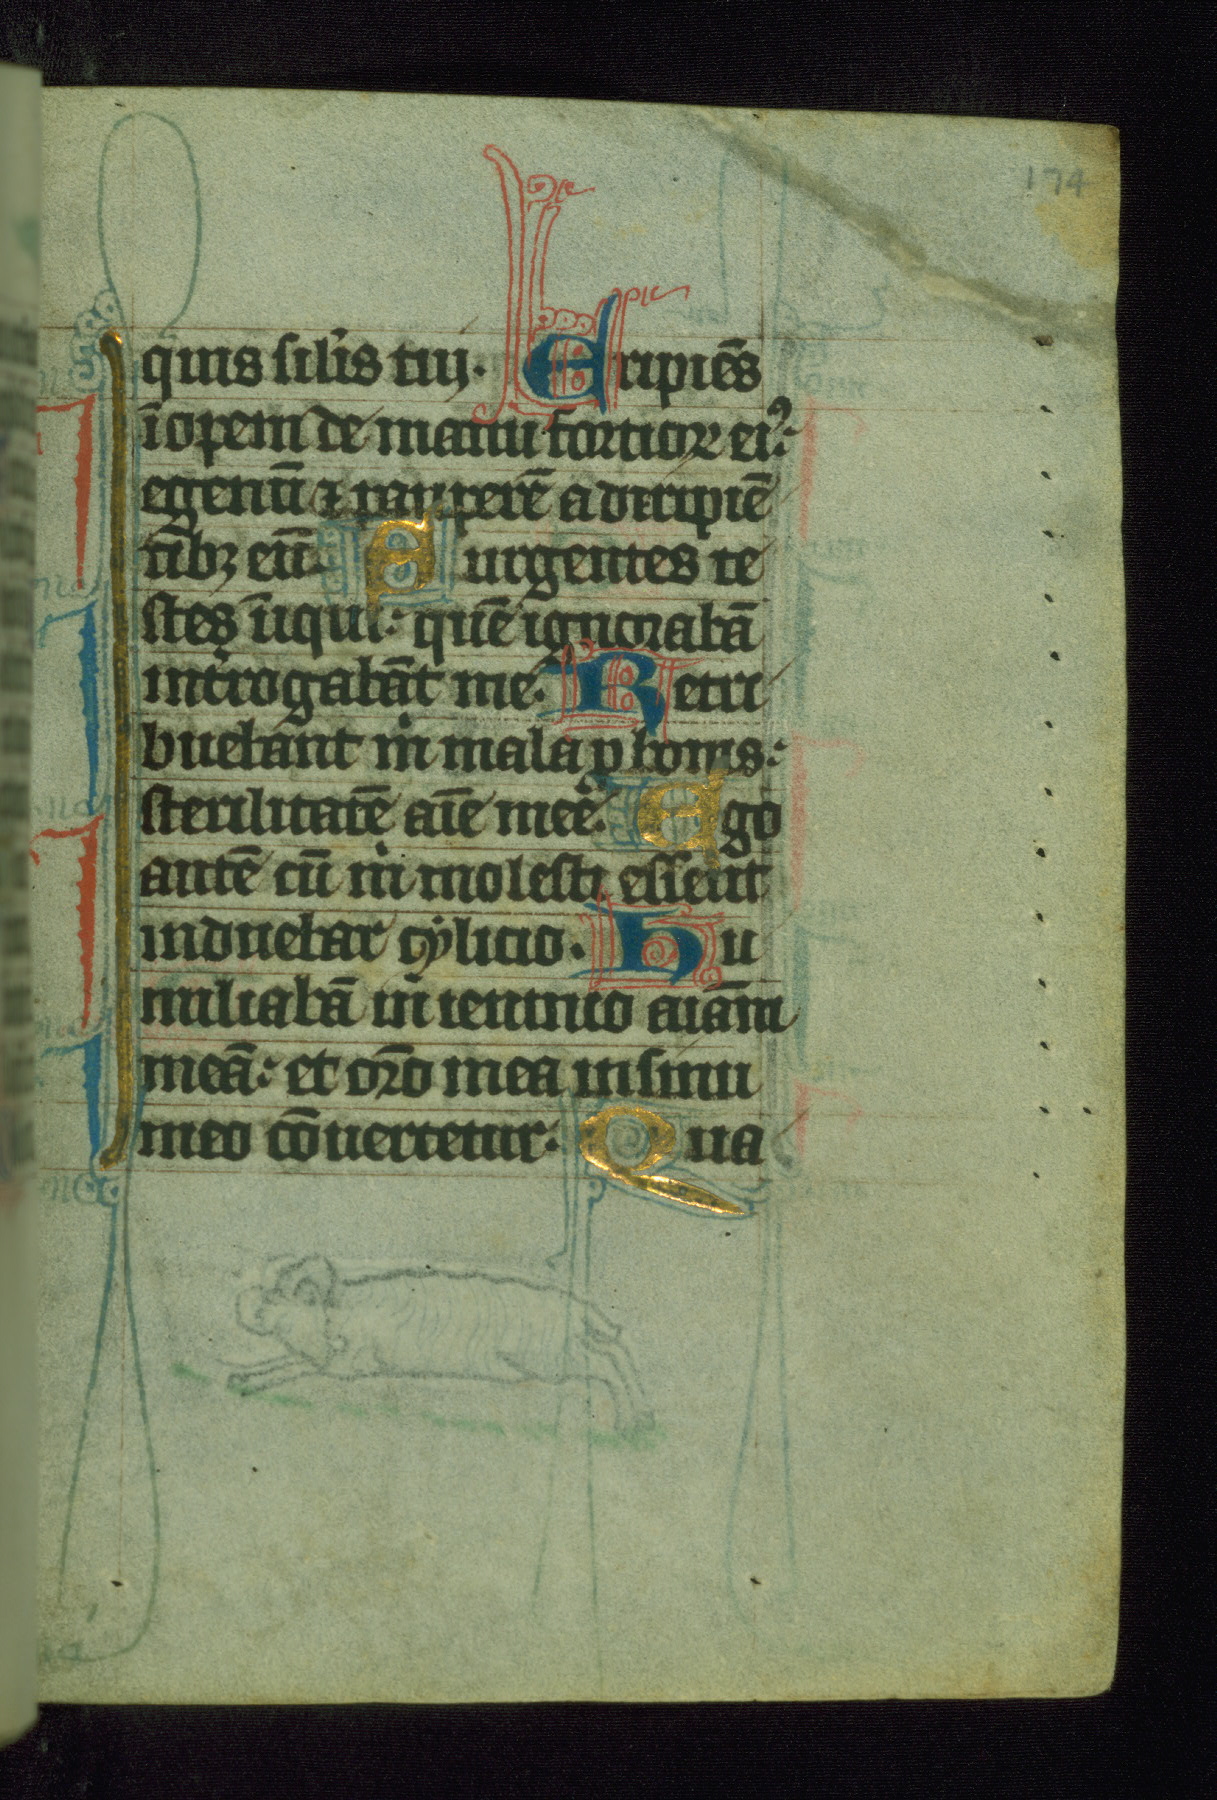 174
quis silis tui. Eripiēs
īopem de manu fortiorꝝ eiꝰ:
egenū ⁊ pauperē a diripiē
tibꝫ eū. Surgentes te
stes īiqui: quē ignorabā
introgabāt me. Retri
buebant m̄ mala p bonis:
sterilitatē aīe mee. Ego
autē cū m̄ molesti essent
induebar cylicio. Hu
miliabā in ieiunio aīam
meā: et orō mea in sinu
meo cōuertetur. Qua